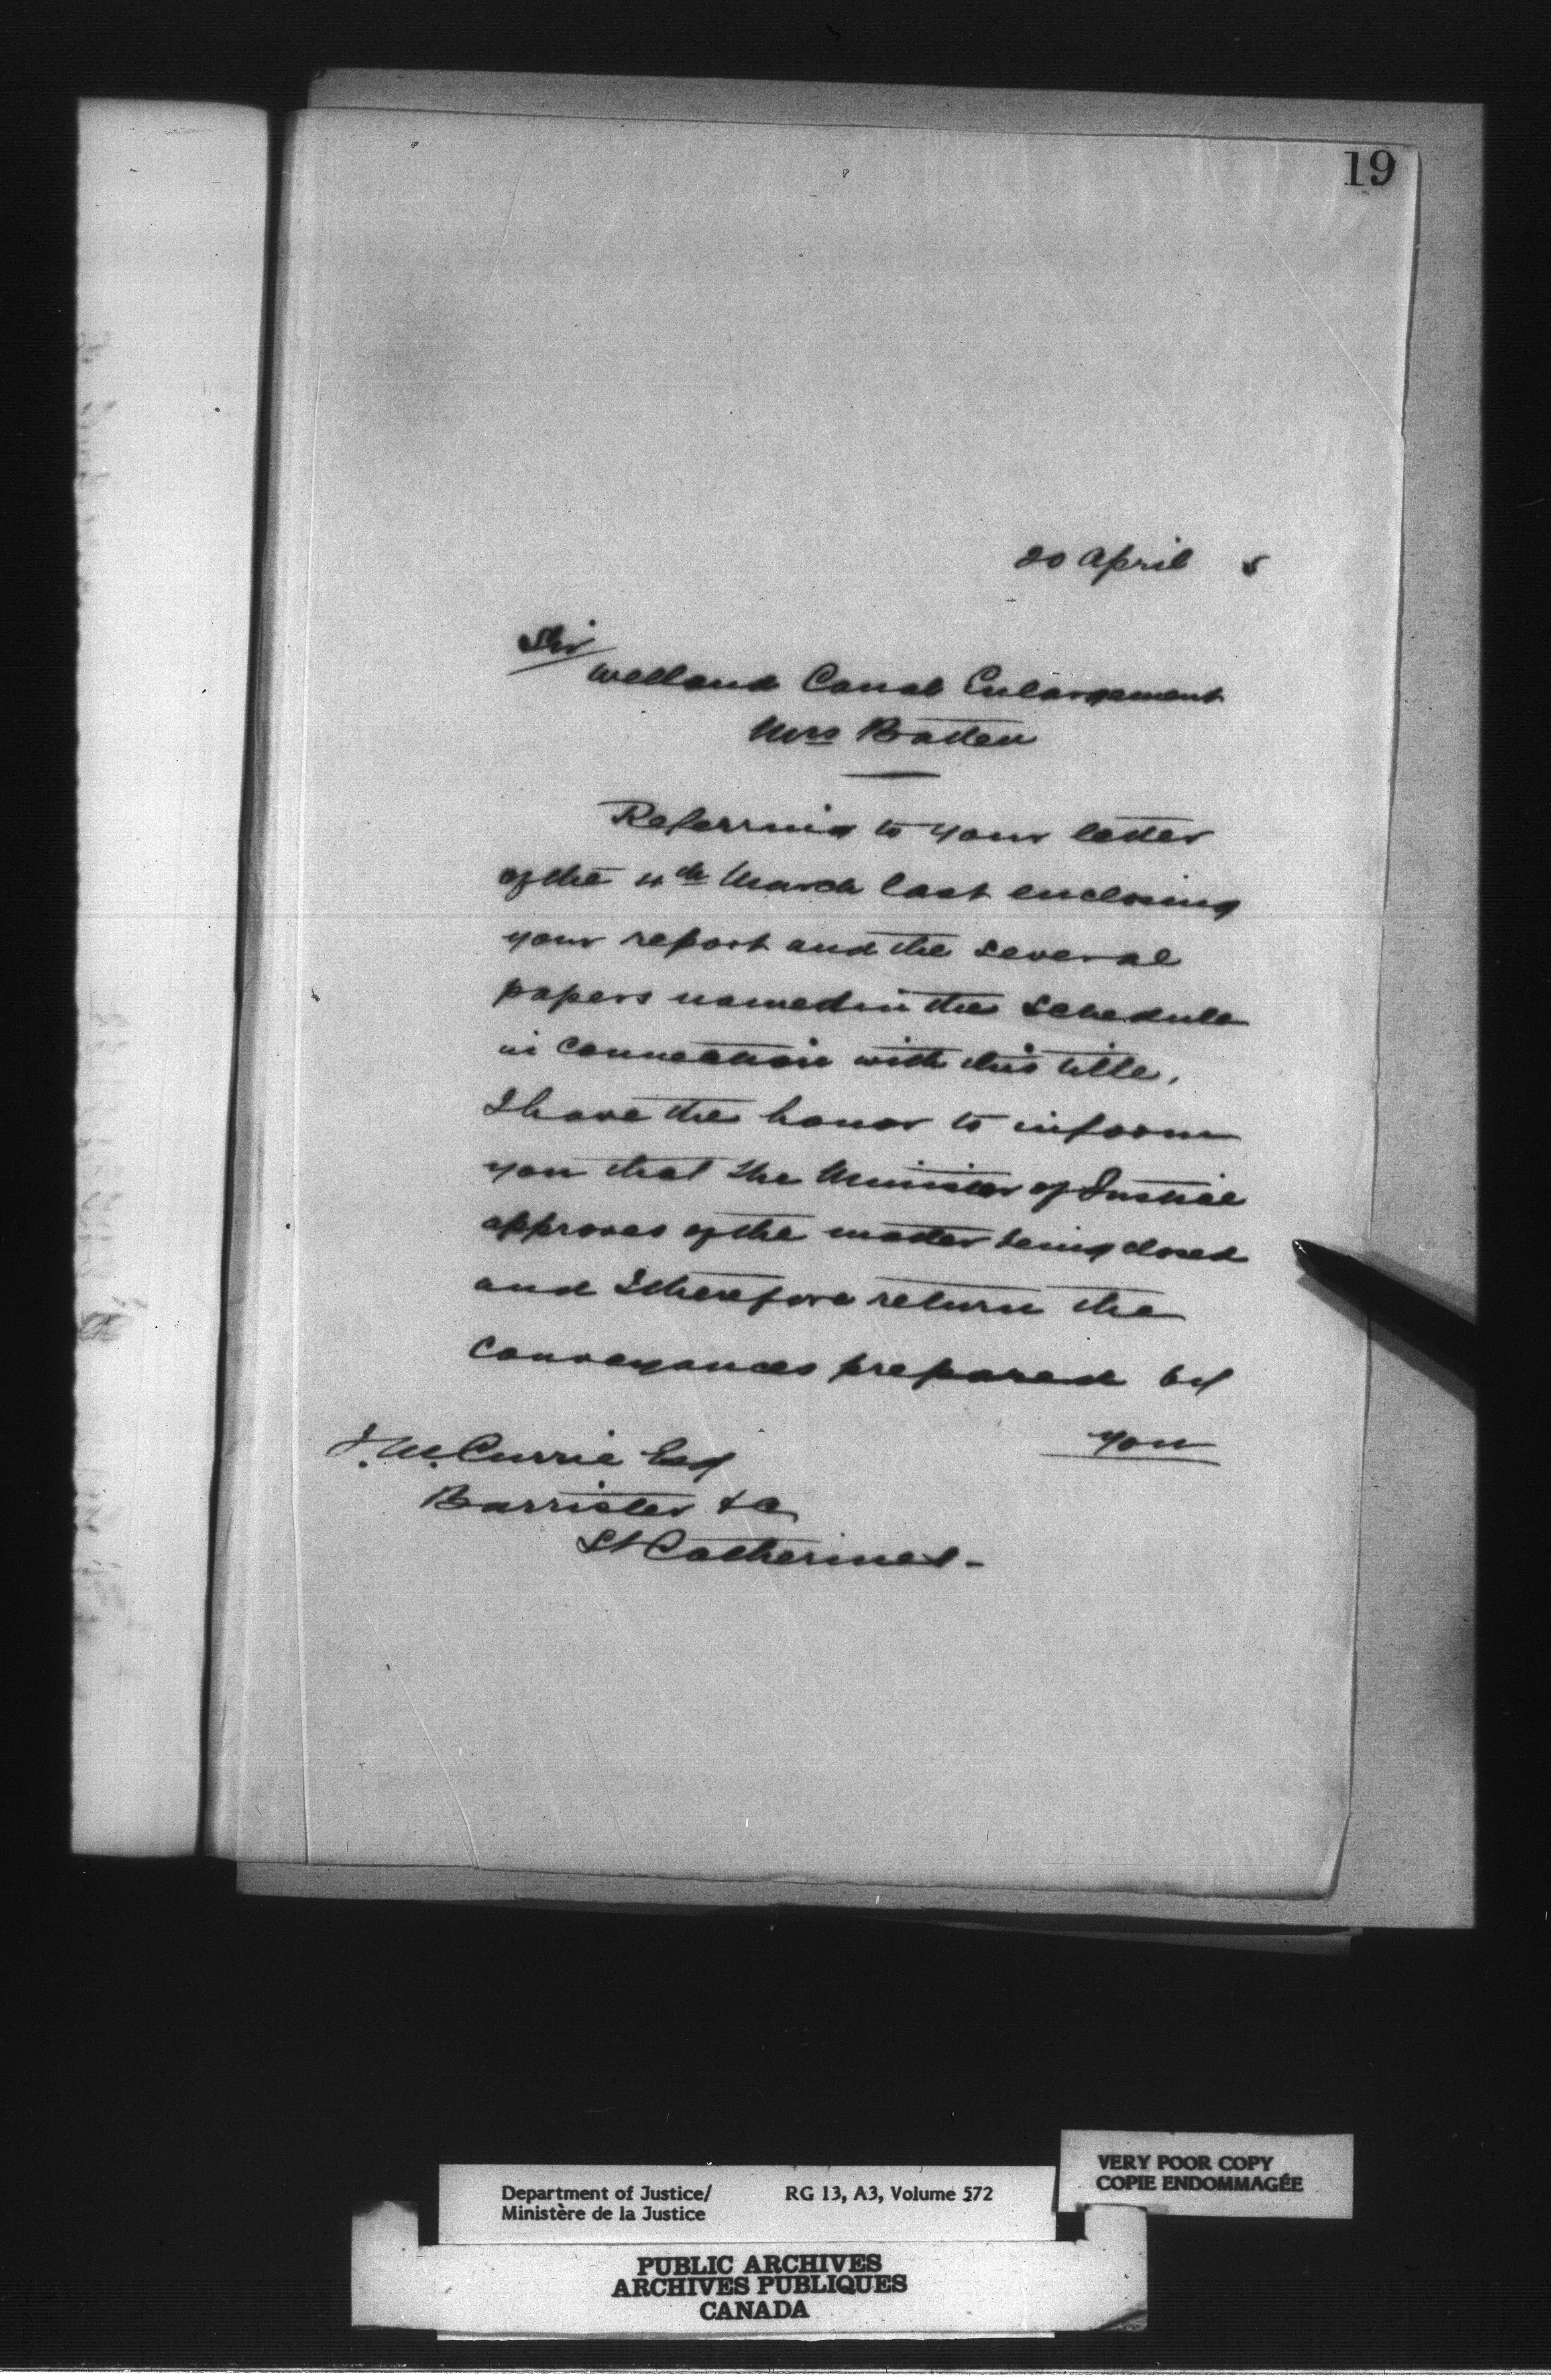 19
20 April 5
Sir
Welland Canal Enlargement
Mrs Batten
Referring to your letter
of the 4th March last enclosing
your report and the several
papers named in the Schedule
in connection with this title,
I have the honor to inform
you that the Minister of Justice
approves of the matter being closed
and I therefore return the
conveyances prepared by
you
J. M. Currie Esq
Barrister &c
St Catherines-
VERY POOR COPY
COPIE ENDOMMAGÉE
Department of Justice/ RG 13, A3, Volume 572
Ministère de la Justice
PUBLIC ARCHIVES
ARCHIVES PUBLIQUES
CANADA